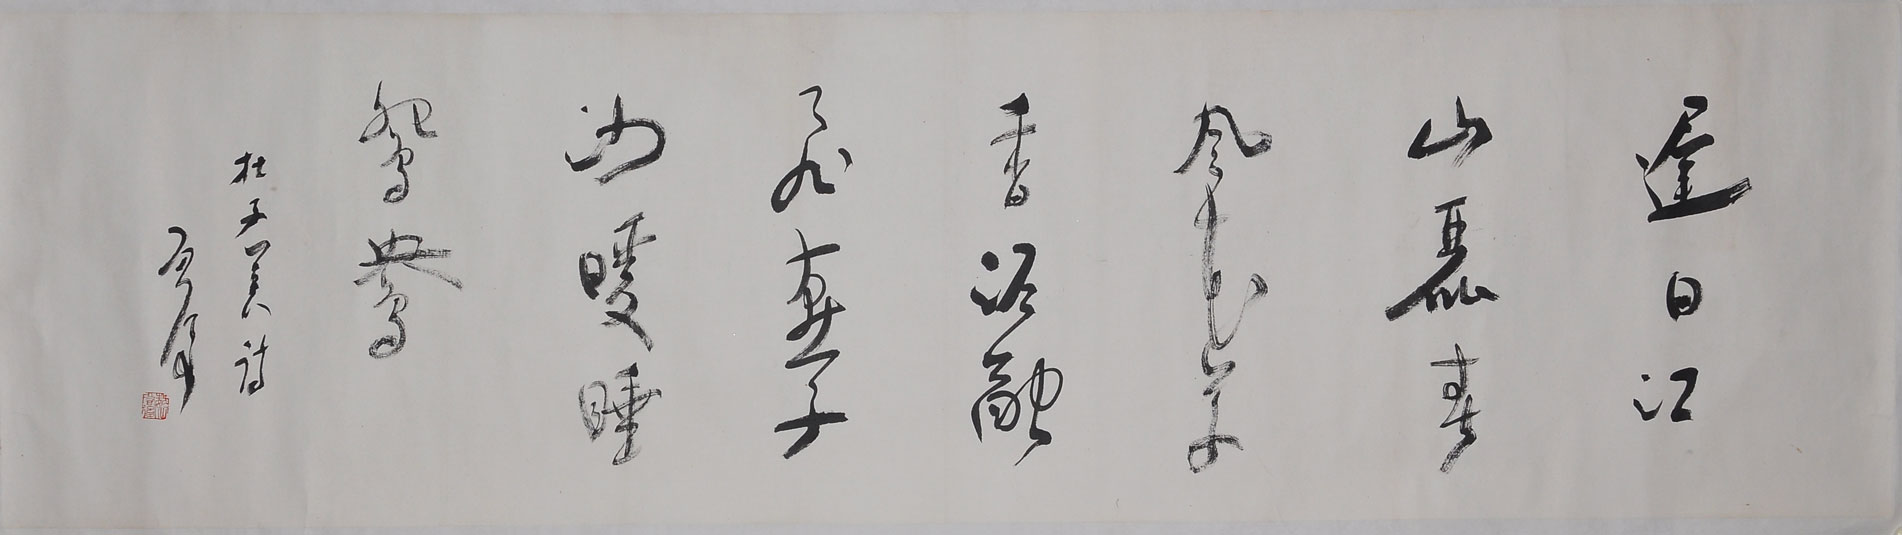 遲日江
山麗春
風花草
香泥融
飛燕子
沙暖睡
鴛鴦
杜子美詩